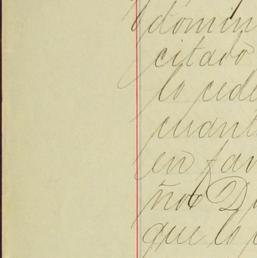 domin
citado
lo cede
cuant
en fav
ños D
que lo p